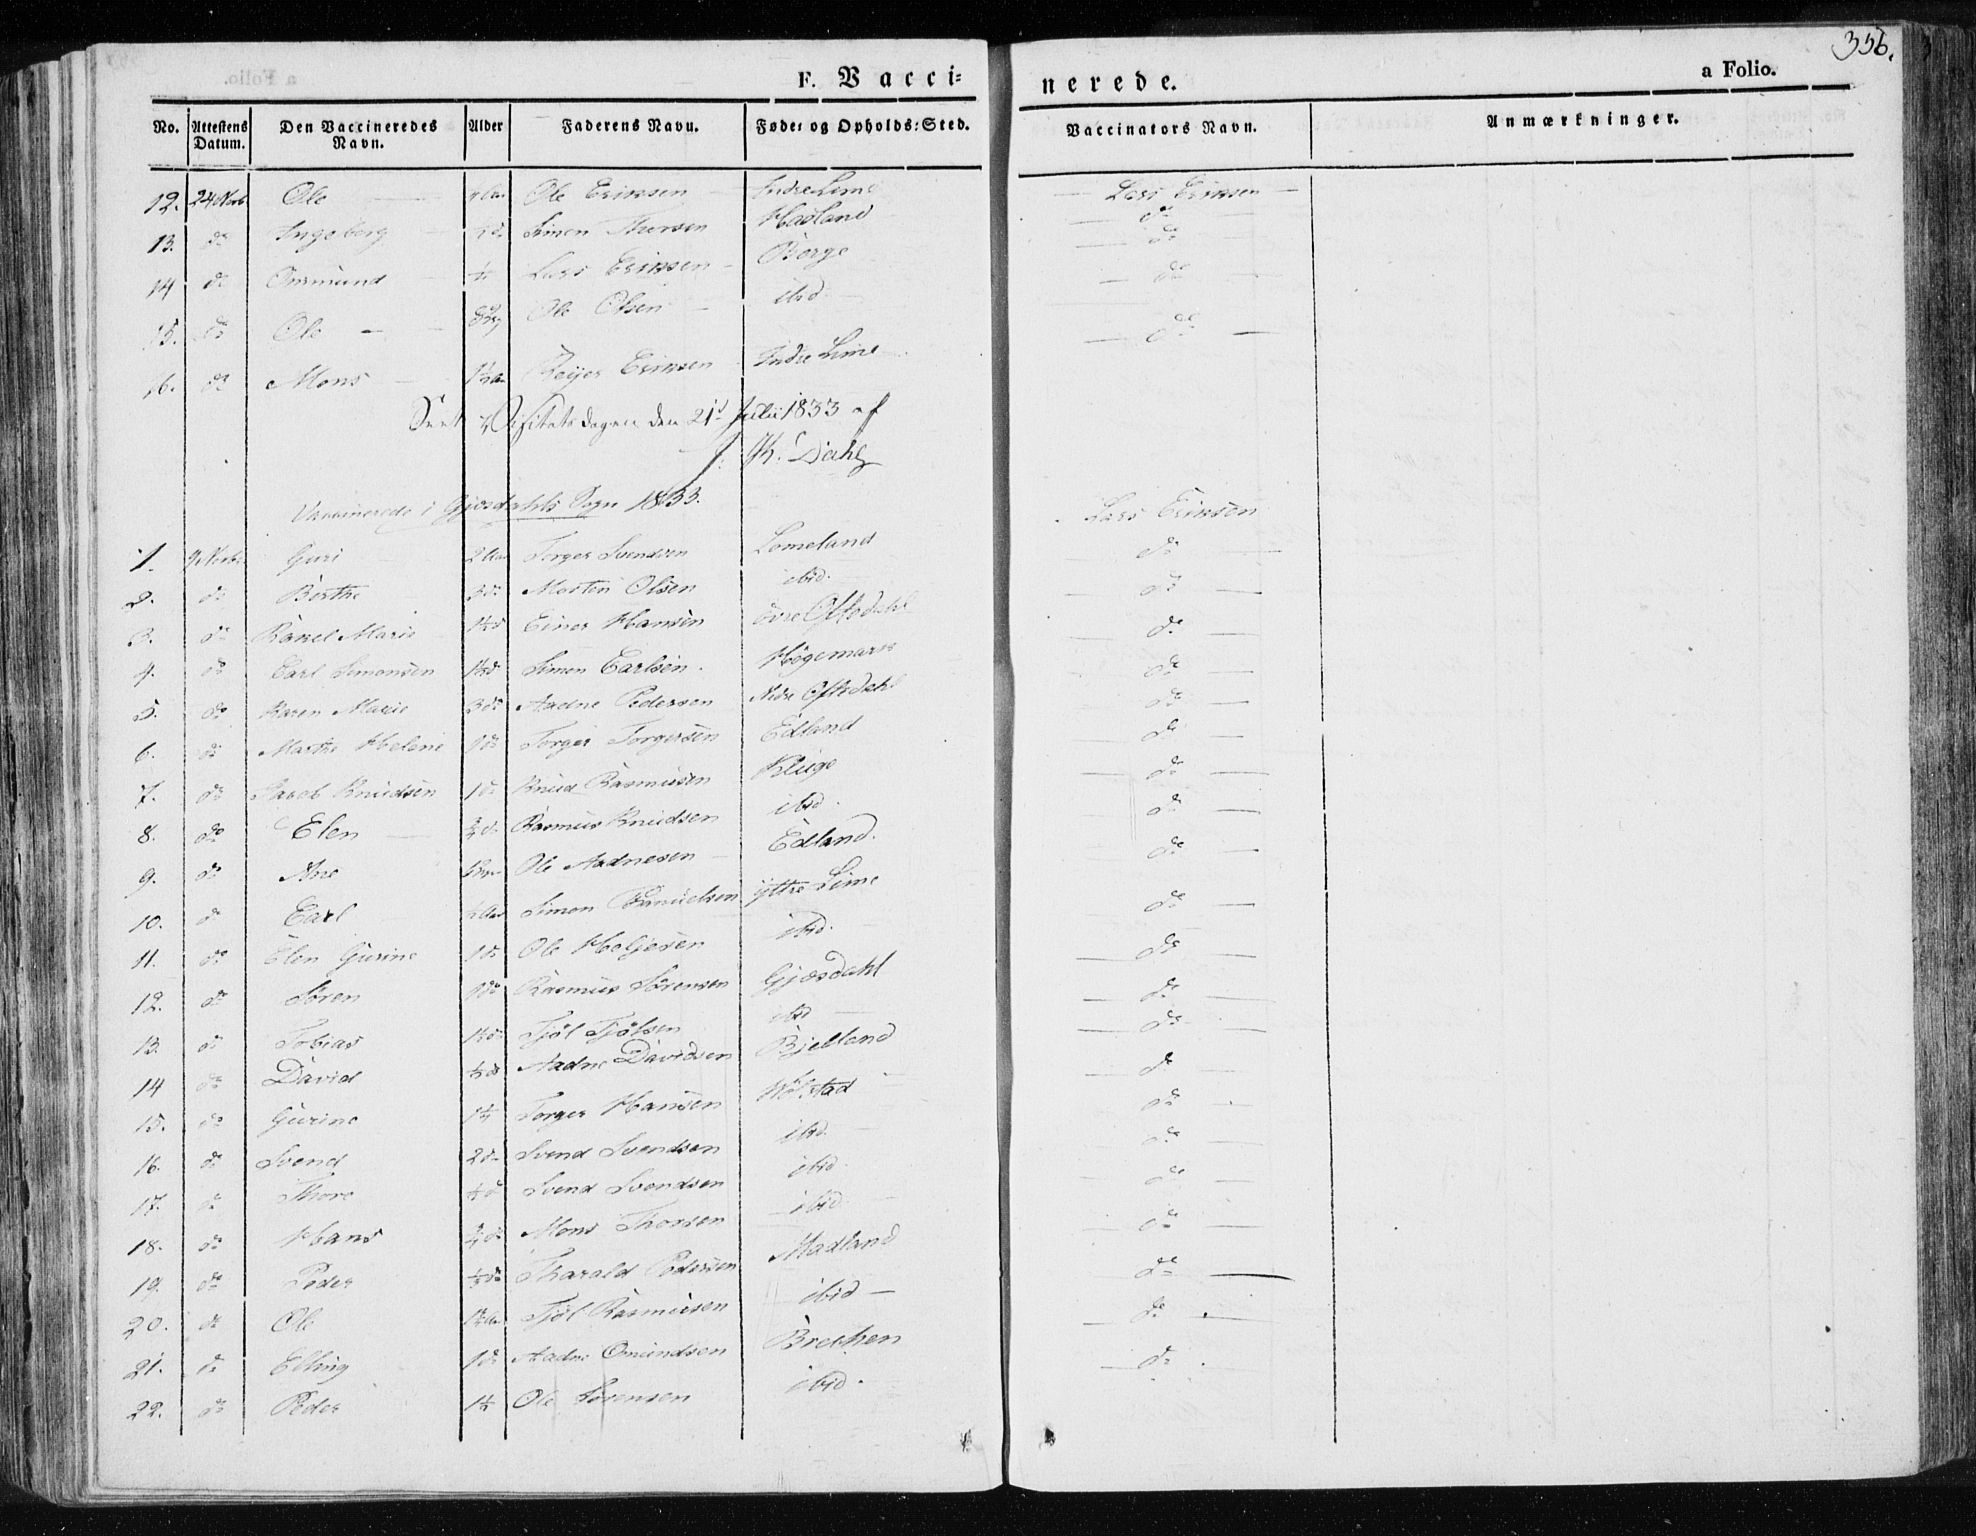 356.
F. Vacci=
nerede.
a Folio.
No. Attestens Datum. Den Vaccineredes Navn. Alder Faderens Navn. Føde= og Opholds=Sted. Vaccinators Navn. Anmærkninger.
12. 24 Novb. Ole Ole Eriksen Indre Lime Lars Eriksen
13. do Ingeberg Simon Thorsen Madland do
14 do Ommund Lars Eriksen Borge do
15. do Ole Ole Olsen ibid. do
16. do Mons 1½ Aar Reijer Eriksen Indre Lime do
Seet Visitatsdagen den 21d Julii 1833 af
J. Dahl
Vaccinerede i Gjæsdahls Sogn 1833.
1. 9 Novbr Guri 2 Aar Torger Svendsen Lomeland Lars Eriksen
2. do Berthe 3 do Morten Olsen ibid. do
3. do Rakel Marie 1½ do Einer Hansen övre Oftedahl do
4. do Carl Simonsen 1½ do Simon Carlsen. Högemark do
5. do Karen Marie 3 do Aadne Pedersen Nedre Oftedahl do
6. do Marthe Helene 1 do Torger Torgersen Edland do
7. do Jacob Knudsen 1 do Knud Rasmusen Kluge do
8. do Elen ¾ do Rasmus Knudsen ibid. do
9. do Ane Ole Aadnesen Edland. do
10. do Carl Simon Samuelsen ÿttre Lime do
11. do Elen Gurine 1 do Ole Helgesen ibid. do
12. do Sören 1 do Rasmus Sörensen Gjæsdahl do
13. do Tobias 1½ do Tjöl Tjölsen ibid do
14 do David ½ do Aadne Davidsen Bjelland do
15. do Gurine 1½ Torger Hansen Hölstad do
16. do Svend 2 do Svend Svendsen ibid. do
17. do Thore ½ do Svend Svendsen ibid. do
18. do Hans ¾ do Mons Thorsen ibid. do
19. do Peder ½ do Tharald Pedersen Madland do
20. do Ole 1½ Aar Tjöl Rasmusen ibid do
21. do Elling 1 do Aadne Omundsen Brekken do
22. do Peder 1½ Ole Sörensen ibid. do